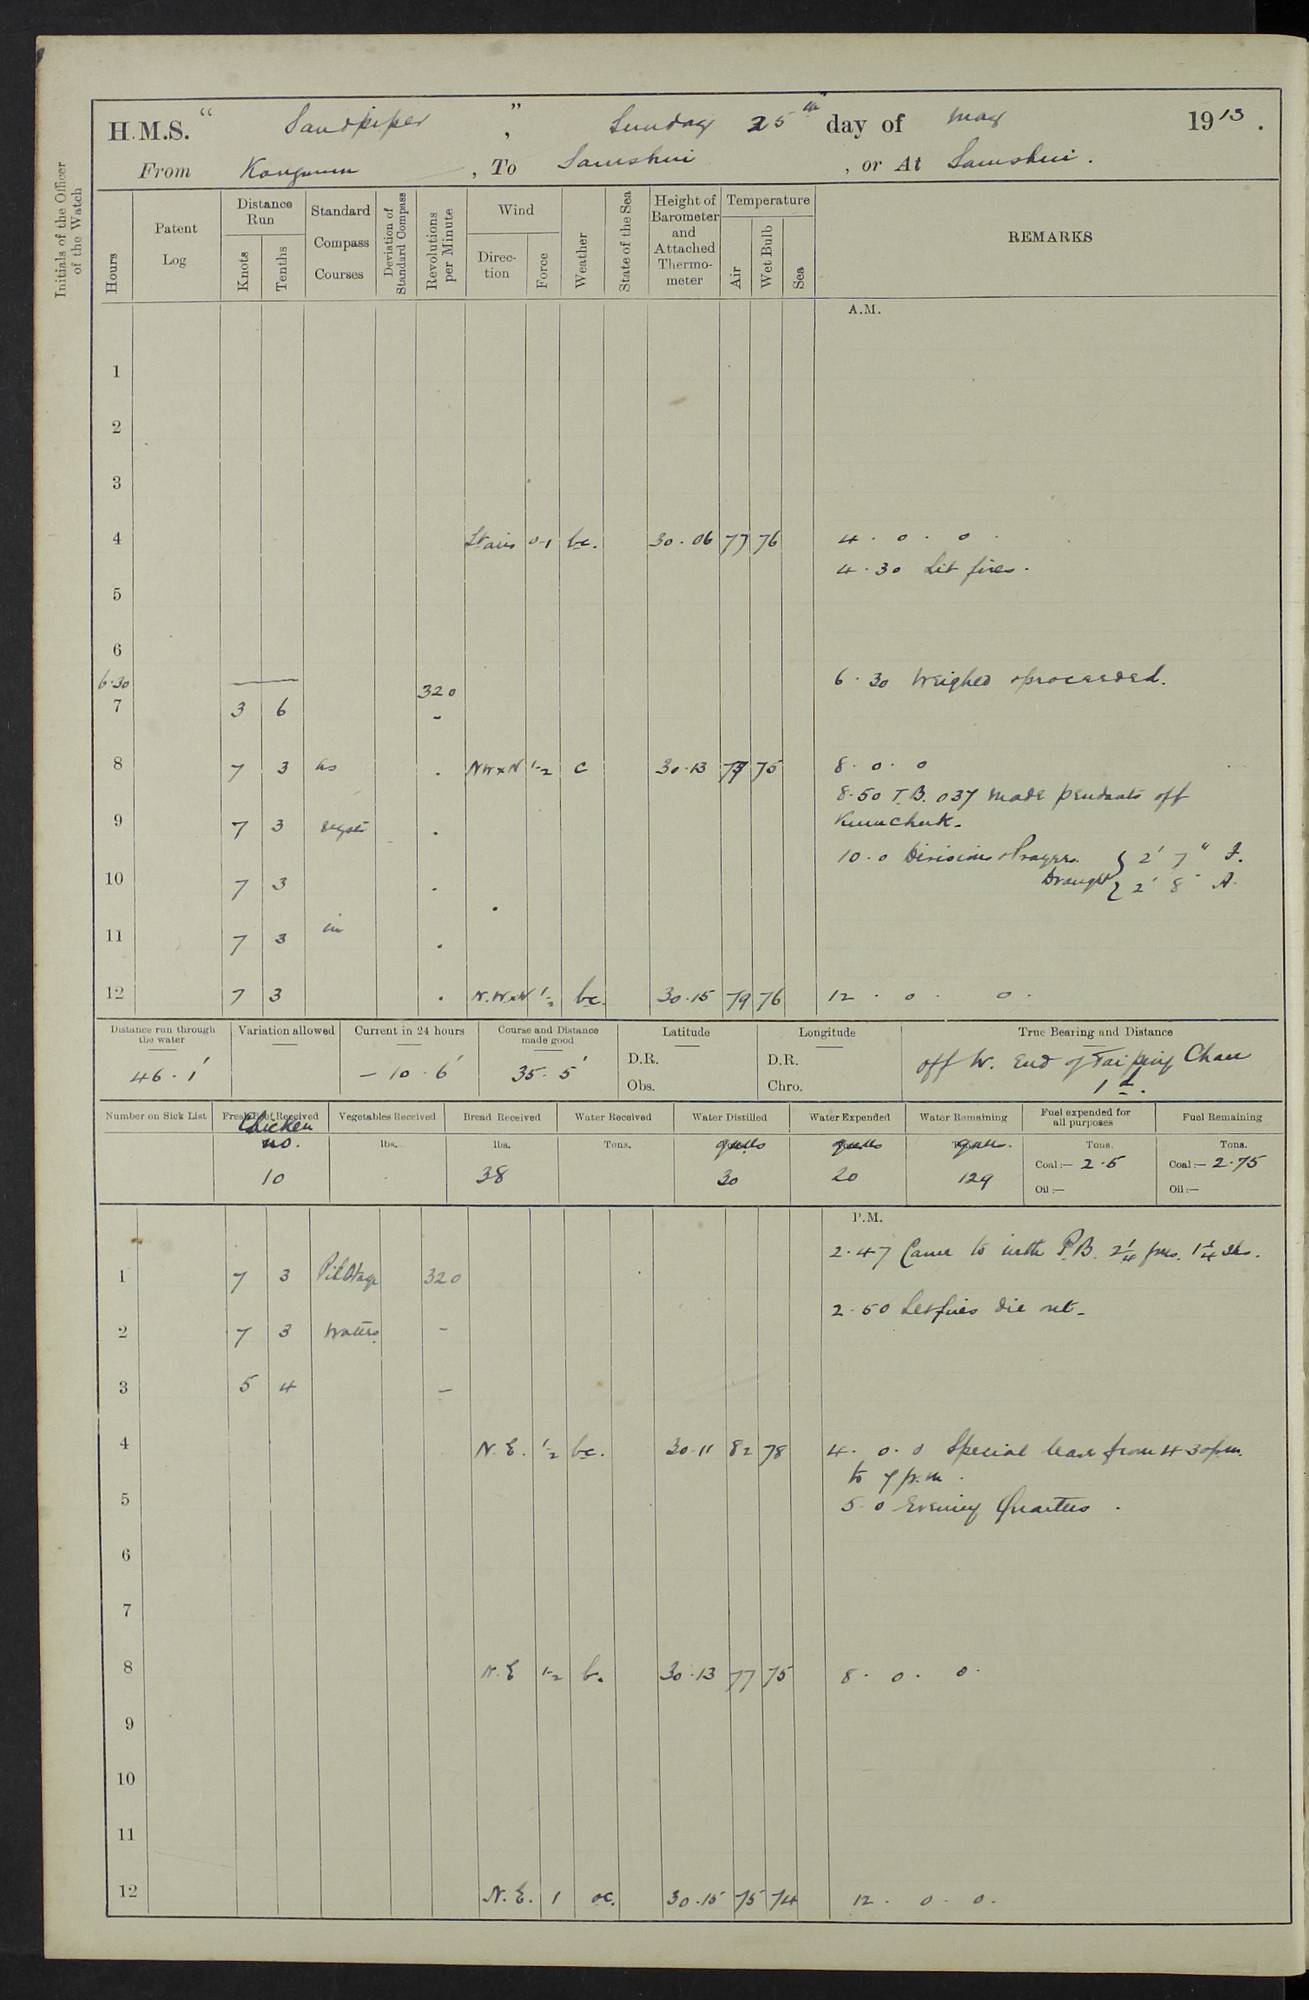 H.M.S. "Sandpiper", Sunday 25th day of May 1913.
From Kongmun, To Samshui, or At Samshui.
Initials of the Officer of the Watch
Hours
Patent Log
Distance Run
Knots
Tenths
Standard Compass Courses
Deviation of Standard Compass
Revolutions per Minute
Wind
Direction
Force
Weather
State of the Sea
Height of Barometer and Attached Thermometer
Temperature
Air
Wet Bulb
Sea
REMARKS
A.M.
1
2
3
4 0-1 bc. 30.06 77 76 4 . 0 . 0 .
4.30 Lit fires.
5
6
6.30 320 6.30 Weighed & proceeded.
7 3 6 -
8 7 3 as . NW x N 1-2 c 30.13 77 75 8 . 0 . 0
8.50 T.B. 037 made pendants off
9 7 3 reqste . Kumchuk.
10.0 Divisions & Prayers. Draught { 2' 7" F.
10 7 3 . 2' 8" A.
11 7 3 in .
12 7 3 . N.W x N 1-2 bc. 30.15 79 76 12 . 0 . 0 .
Distance run through the water
46.1'
Variation allowed
Current in 24 hours
- 10.6'
Course and Distance made good
35.5'
Latitude
D.R.
Obs.
Longitude
D.R.
Chro.
True Bearing and Distance
off W. End of Tai Ping Chau
1 .
Number on Sick List
Fresh Beef Received
Chicken
no.
10
Vegetables Received
lbs.
Bread Received
lbs.
38
Water Received
Tons.
Water Distilled
galls
30
Water Expended
galls
20
Water Remaining
galls.
129
Fuel expended for all purposes
Tons.
Coal:— 2.5
Oil:—
Fuel Remaining
Tons.
Coal:— 2.75
Oil:—
P.M.
2.47 Came to with P.B. 2¼ fms. 1¼ Shs.
1 7 3 Pilotage 320
2.50 Let fires die out.
2 7 3 waters. -
3 5 4 -
4 N.E. 1-2 bc. 30.11 82 78 4 . 0 . 0 Special leave from 4 30 p.m.
to 7 p.m.
5 5.0 Evening Quarters.
6
7
8 N.E 1-2 b. 30.13 77 75 8 . 0 . 0 .
9
10
11
12 N.E. 1 oc. 30.15 75 74 12 . 0 . 0 .